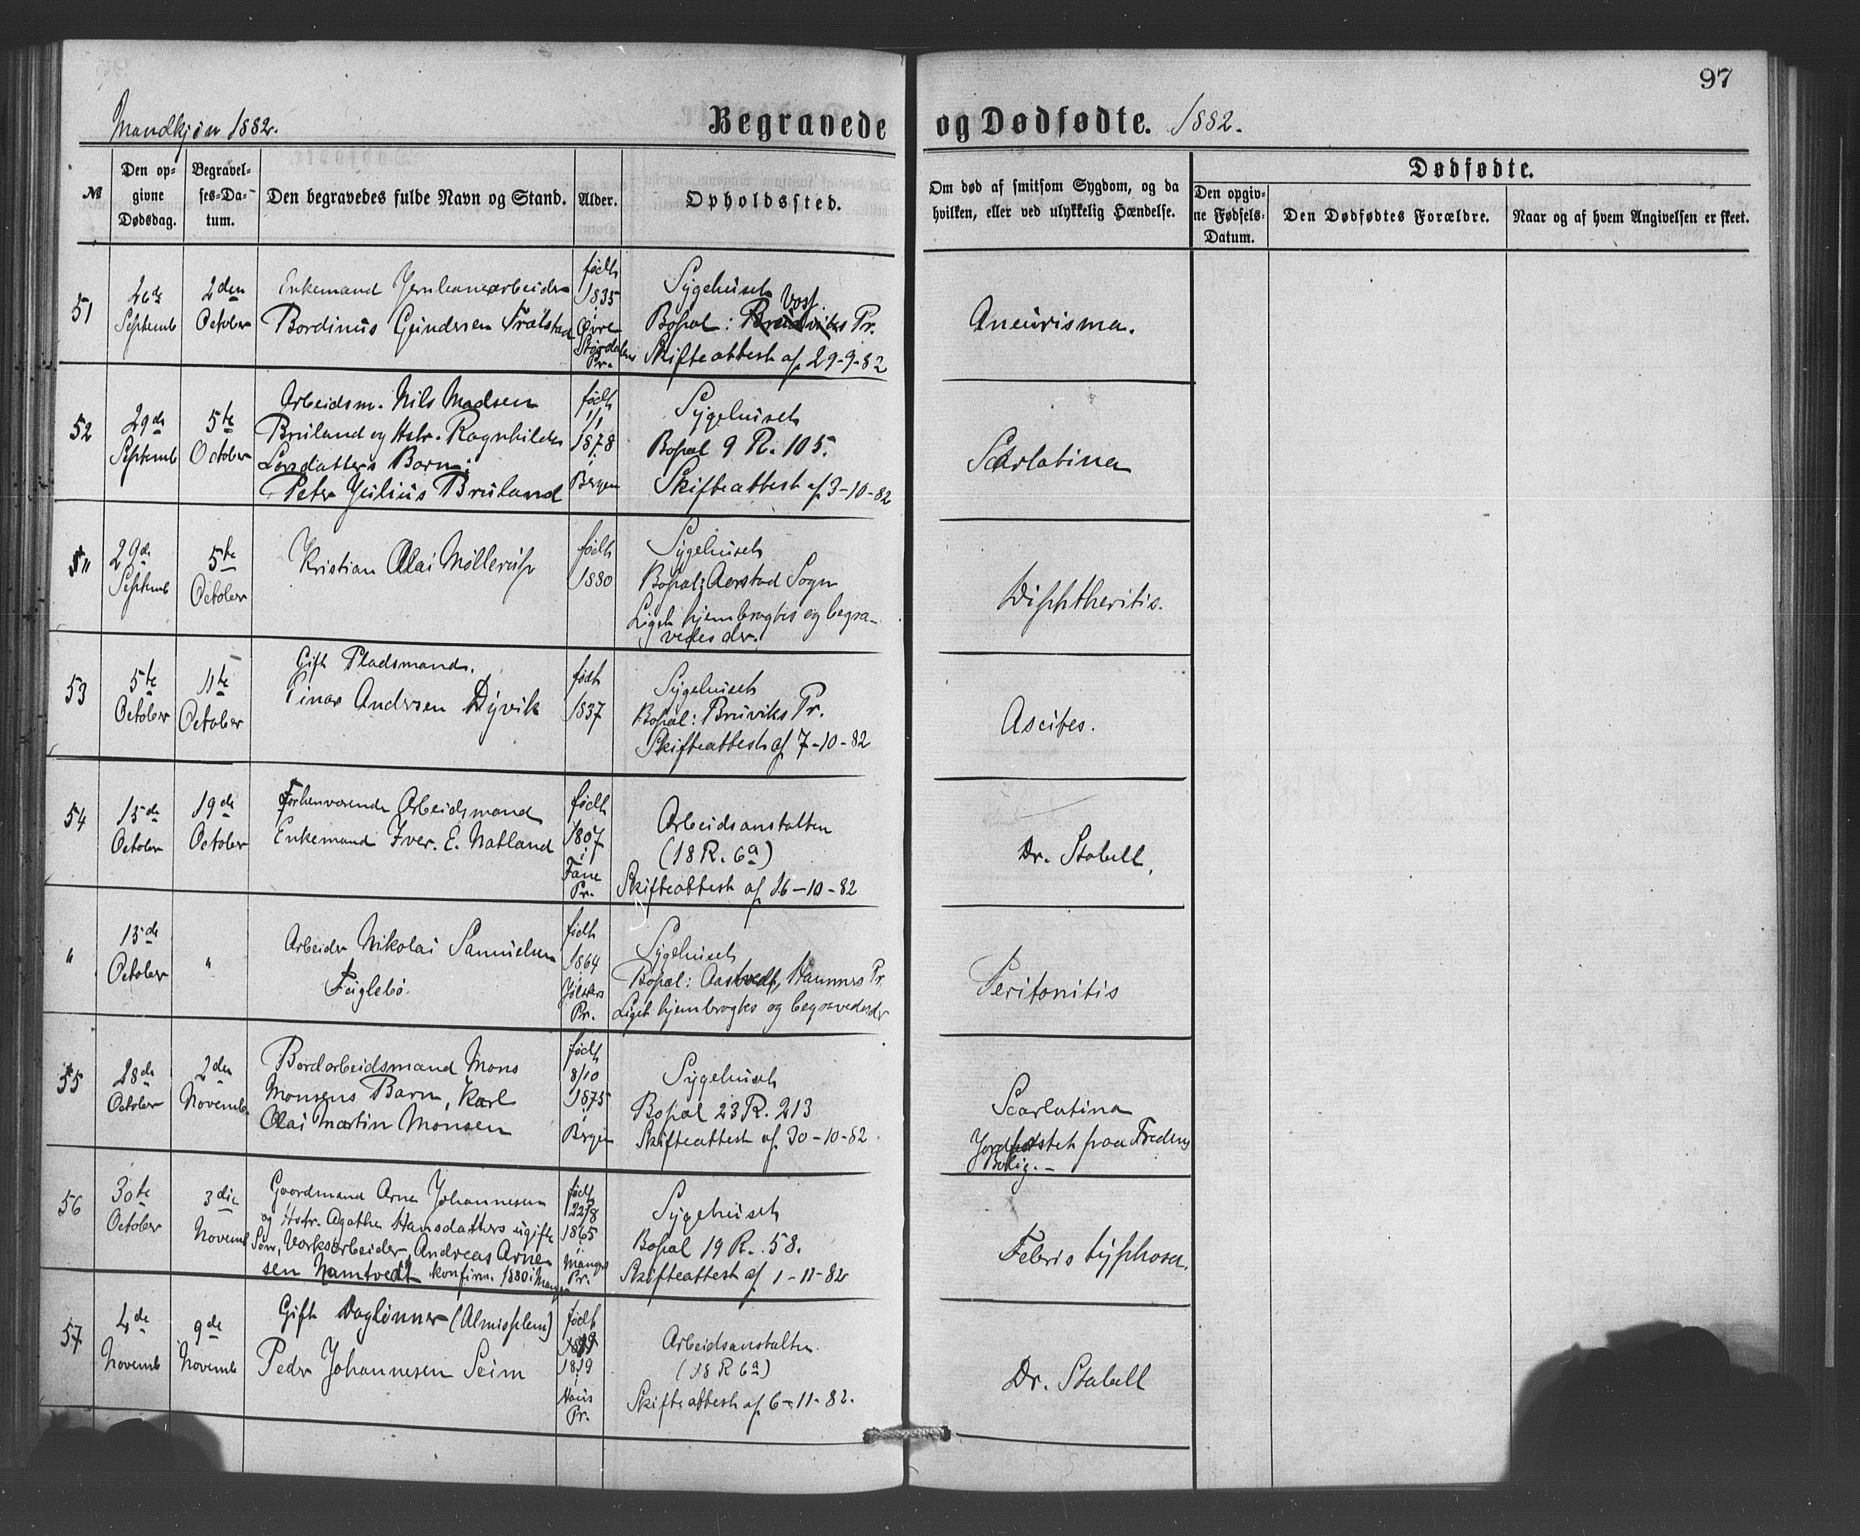 97
Mandkjøn 1882.
Begravede og Dødfødte. 1882.
№
Den opgivne Dødsdag.
Begravelses-Datum.
Den begravedes fulde Navn og Stand.
Alder.
Opholdssted.
Om død af smitsom Sygdom, og da hvilken, eller ved ulykkelig Hændelse.
Dødfødte.
Den opgivne Fødsels-Datum.
Den Dødfødtes Forældre.
Naar og af hvem Angivelsen er skeet.
51
26de Septemb
2den October
Enkemand Jernbanearbeider
Bordinus Gundersen Frætstad
født 1835 i Øvre Størdalens Pr.
Sygehuset
Bopæl: Bruviks Voss Pr.
Skifteattest af 29-9-82
Aneurisma.
52
29de Septemb
5te October
Arbeidsm. Nils Madsen
Bruland og Hstr. Ragnhilde
Larsdatters Barn:
Peter Julius Bruland
født 1/1 1878 i Bergen
Sygehuset
Bopæl 9 R. 105.
Skifteattest af 3-10-82
Scarlatina
"
29de Septemb
5te October
Kristian Olai Møllerup
født 1880
Sygehuset
Bopæl: Aarstad Sogn
Liget hjembragtes og begra-
vedes der.
Diphtheritis.
53
5te October
11te October
Gift Pladsmand.
Einar Andersen Dyvik
født 1837
Sygehuset
Bopæl: Bruviks Pr.
Skifteattest af 7-10-82
Ascites.
54
15de October
19de October
Forhenværende Arbeidsmand
Enkemand Iver. E. Natland
født 1807 i Fane Pr.
Arbeidsanstalten
(18 R. 6a)
Skifteattest af 16-10-82
Dr. Stabell.
"
15de October
"
Arbeider Nikolai Samuelsen
Fuglebø.
født 1864 Jølsters Pr.
Sygehuset
Bopæl: Aastvedt, Hammers Pr.
Liget hjembragtes og begravedes der
Peritonitis
55
28de October
2den Novemb
Bordarbeidsmand Mons
Monsens Barn, Karl
Olai Martin Monsen
født 8/10 1875 i Bergen
Sygehuset
Bopæl 23 R. 213
Skifteattest af 30-10-82
Scarlatina
Jordfæstet fra Fredens
Bolig.-
56
30te October
3die Novemb
Gaardmand Arne Johannesen
og Hstr. Agathe Hansdatters ugifte
Søn, Værksarbeider, Andreas Arne-
sen Namtvedt konfirm. 1880 i Manger
født 1865 i Mangers Pr.
Sygehuset
Bopæl 19 R. 58.
Skifteattest af 1-11-82
Febris typhosa.
57
4de Novemb
9de Novemb
Gift Daglønner (Almisselem)
Peder Johannesen Seim
født 1819 i Haus Pr.
Arbeidsanstalten
(18 R 6a)
Skifteattest af 6-11-82.
Dr. Stabell